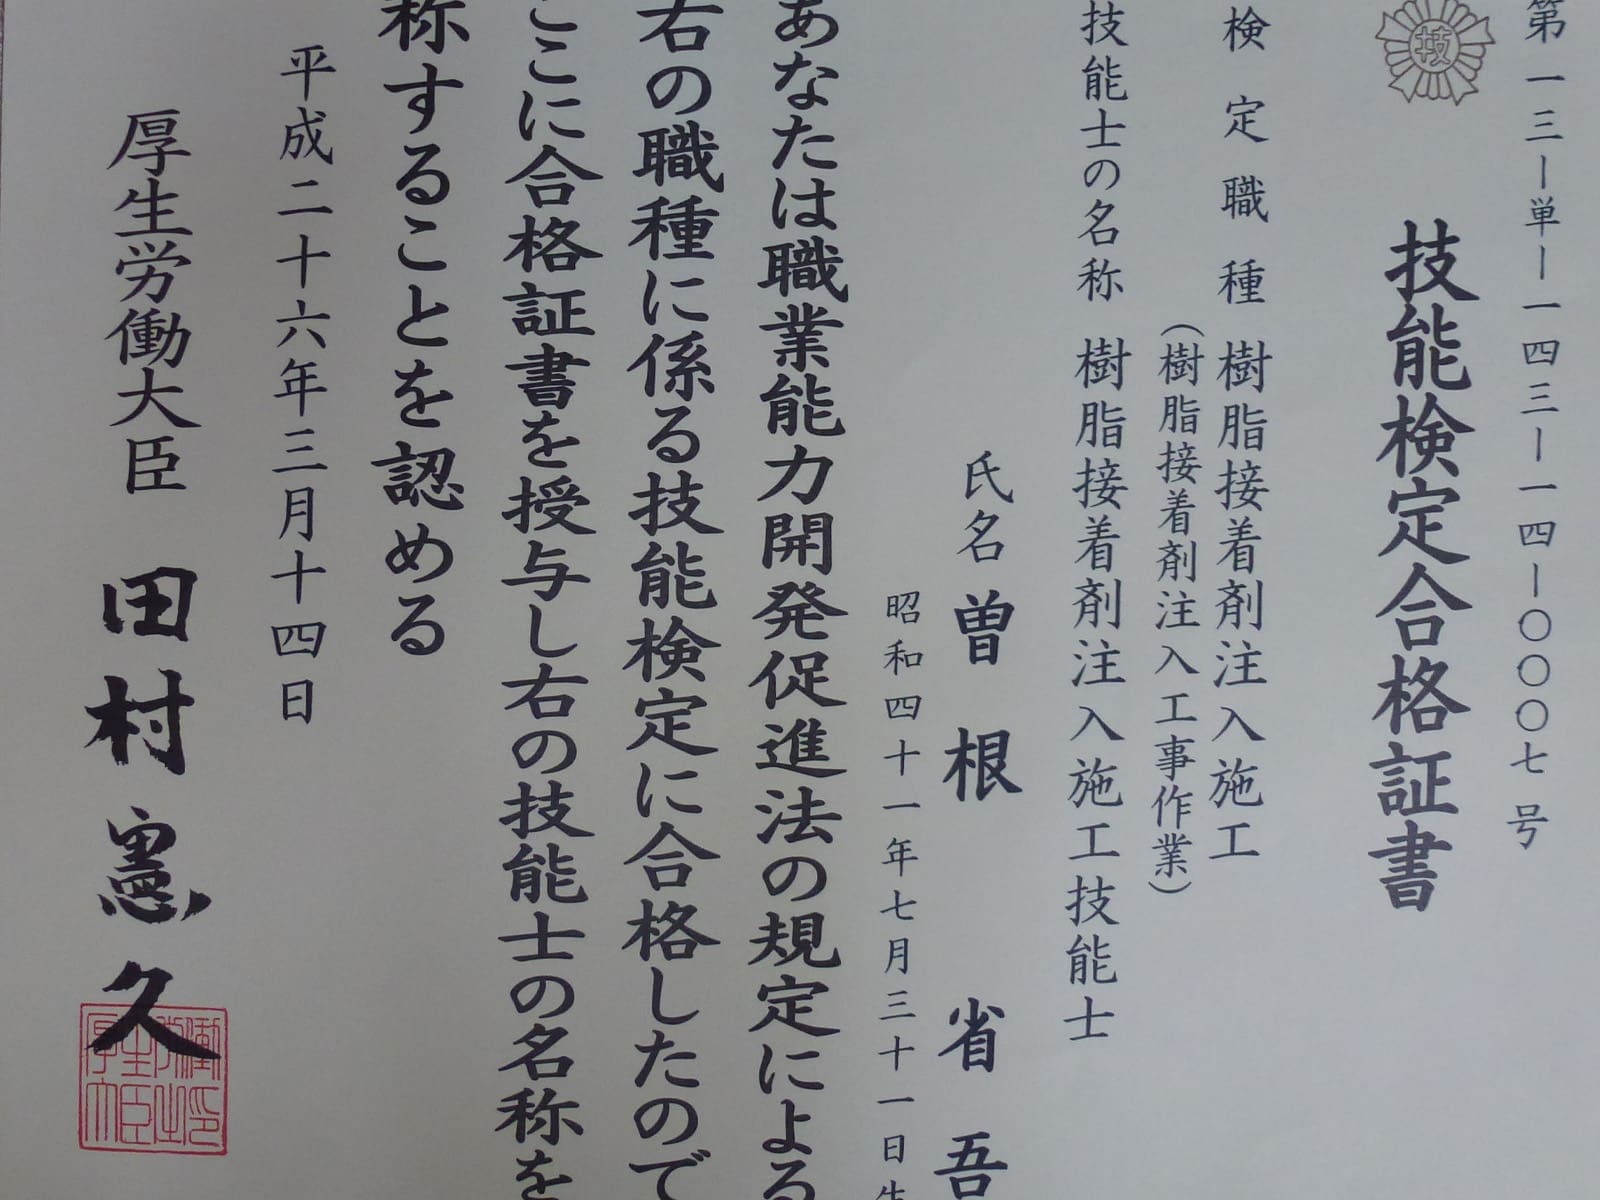 第一三ー単ー一四三ー一四ー〇〇〇七号
技
技能検定合格証書
検定職種 樹脂接着剤注入施工
(樹脂接着剤注入工事作業)
技能士の名称 樹脂接着剤注入施工技能士
氏名 曽根省吾
昭和四十一年七月三十一日生
あなたは職業能力開発促進法の規定による
右の職種に係る技能検定に合格したので
ここに合格証書を授与し右の技能士の名称を
称することを認める
平成二十六年三月十四日
厚生労働大臣 田村憲久